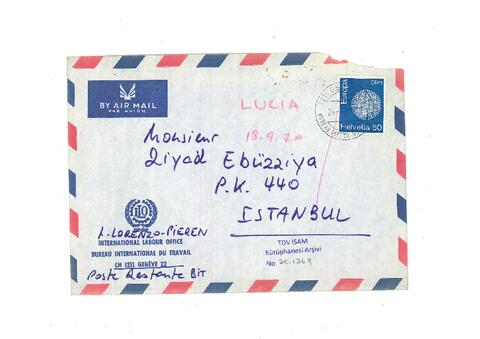 BY AIR MAIL
PAR AVION
LUCIA
18.9.70
Europa
CEPT
Helvetia 50
Monsieur
Ziyad Ebüzziya
P.K. 440
ISTANBUL
L. LORENZO-PIEREN
INTERNATIONAL LABOUR OFFICE
BUREAU INTERNATIONAL DU TRAVAIL
CH 1211 GENÈVE 22
Poste Restante BIT
TDV İSAM
Kütüphanesi Arşivi
No ZE.1369